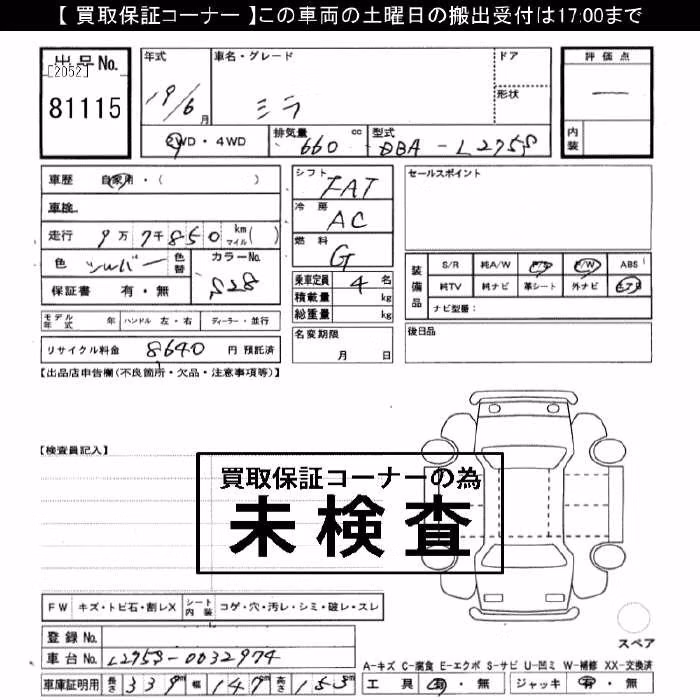 【 買取保証コーナー 】この車両の土曜日の搬出受付は17:00まで
出品No. 年式 車名・グレード ドア 評価点
[2052]
81115 19/6 月 ミラ 形状 —
2WD・4WD 排気量 660 cc 型式 DBA-L275S 内装
車歴 自家用・( ) シフト FAT セールスポイント
車検 冷房 AC
走行 9万7千850 km マイル ( ) 燃料 G
色 シルバー 色替 カラーNo. S28
保証書 有・無
乗車定員 4 名
積載量 kg
総重量 kg
装備品 S/R 純A/W P/S P/W ABS
純TV 純ナビ 革シート 外ナビ エアB
ナビ型番：
モデル年式 年 ハンドル 左・右 ディーラー・並行
名変期限 月 日
後日品
リサイクル料金 8640 円 預託済
【出品店申告欄(不良箇所・欠品・注意事項等)】
【検査員記入】
買取保証コーナーの為
未検査
FW キズ・トビ石・割レX シート内装 コゲ・穴・汚レ・シミ・破レ・スレ
登録No.
スペア
車台No. L275S-0032974
A-キズ C-腐食 E-エクボ S-サビ U-凹ミ W-補修 XX-交換済
車庫証明用 長さ 339 m 幅 147 m 高さ 153 m 工具 有・無 ジャッキ 有・無